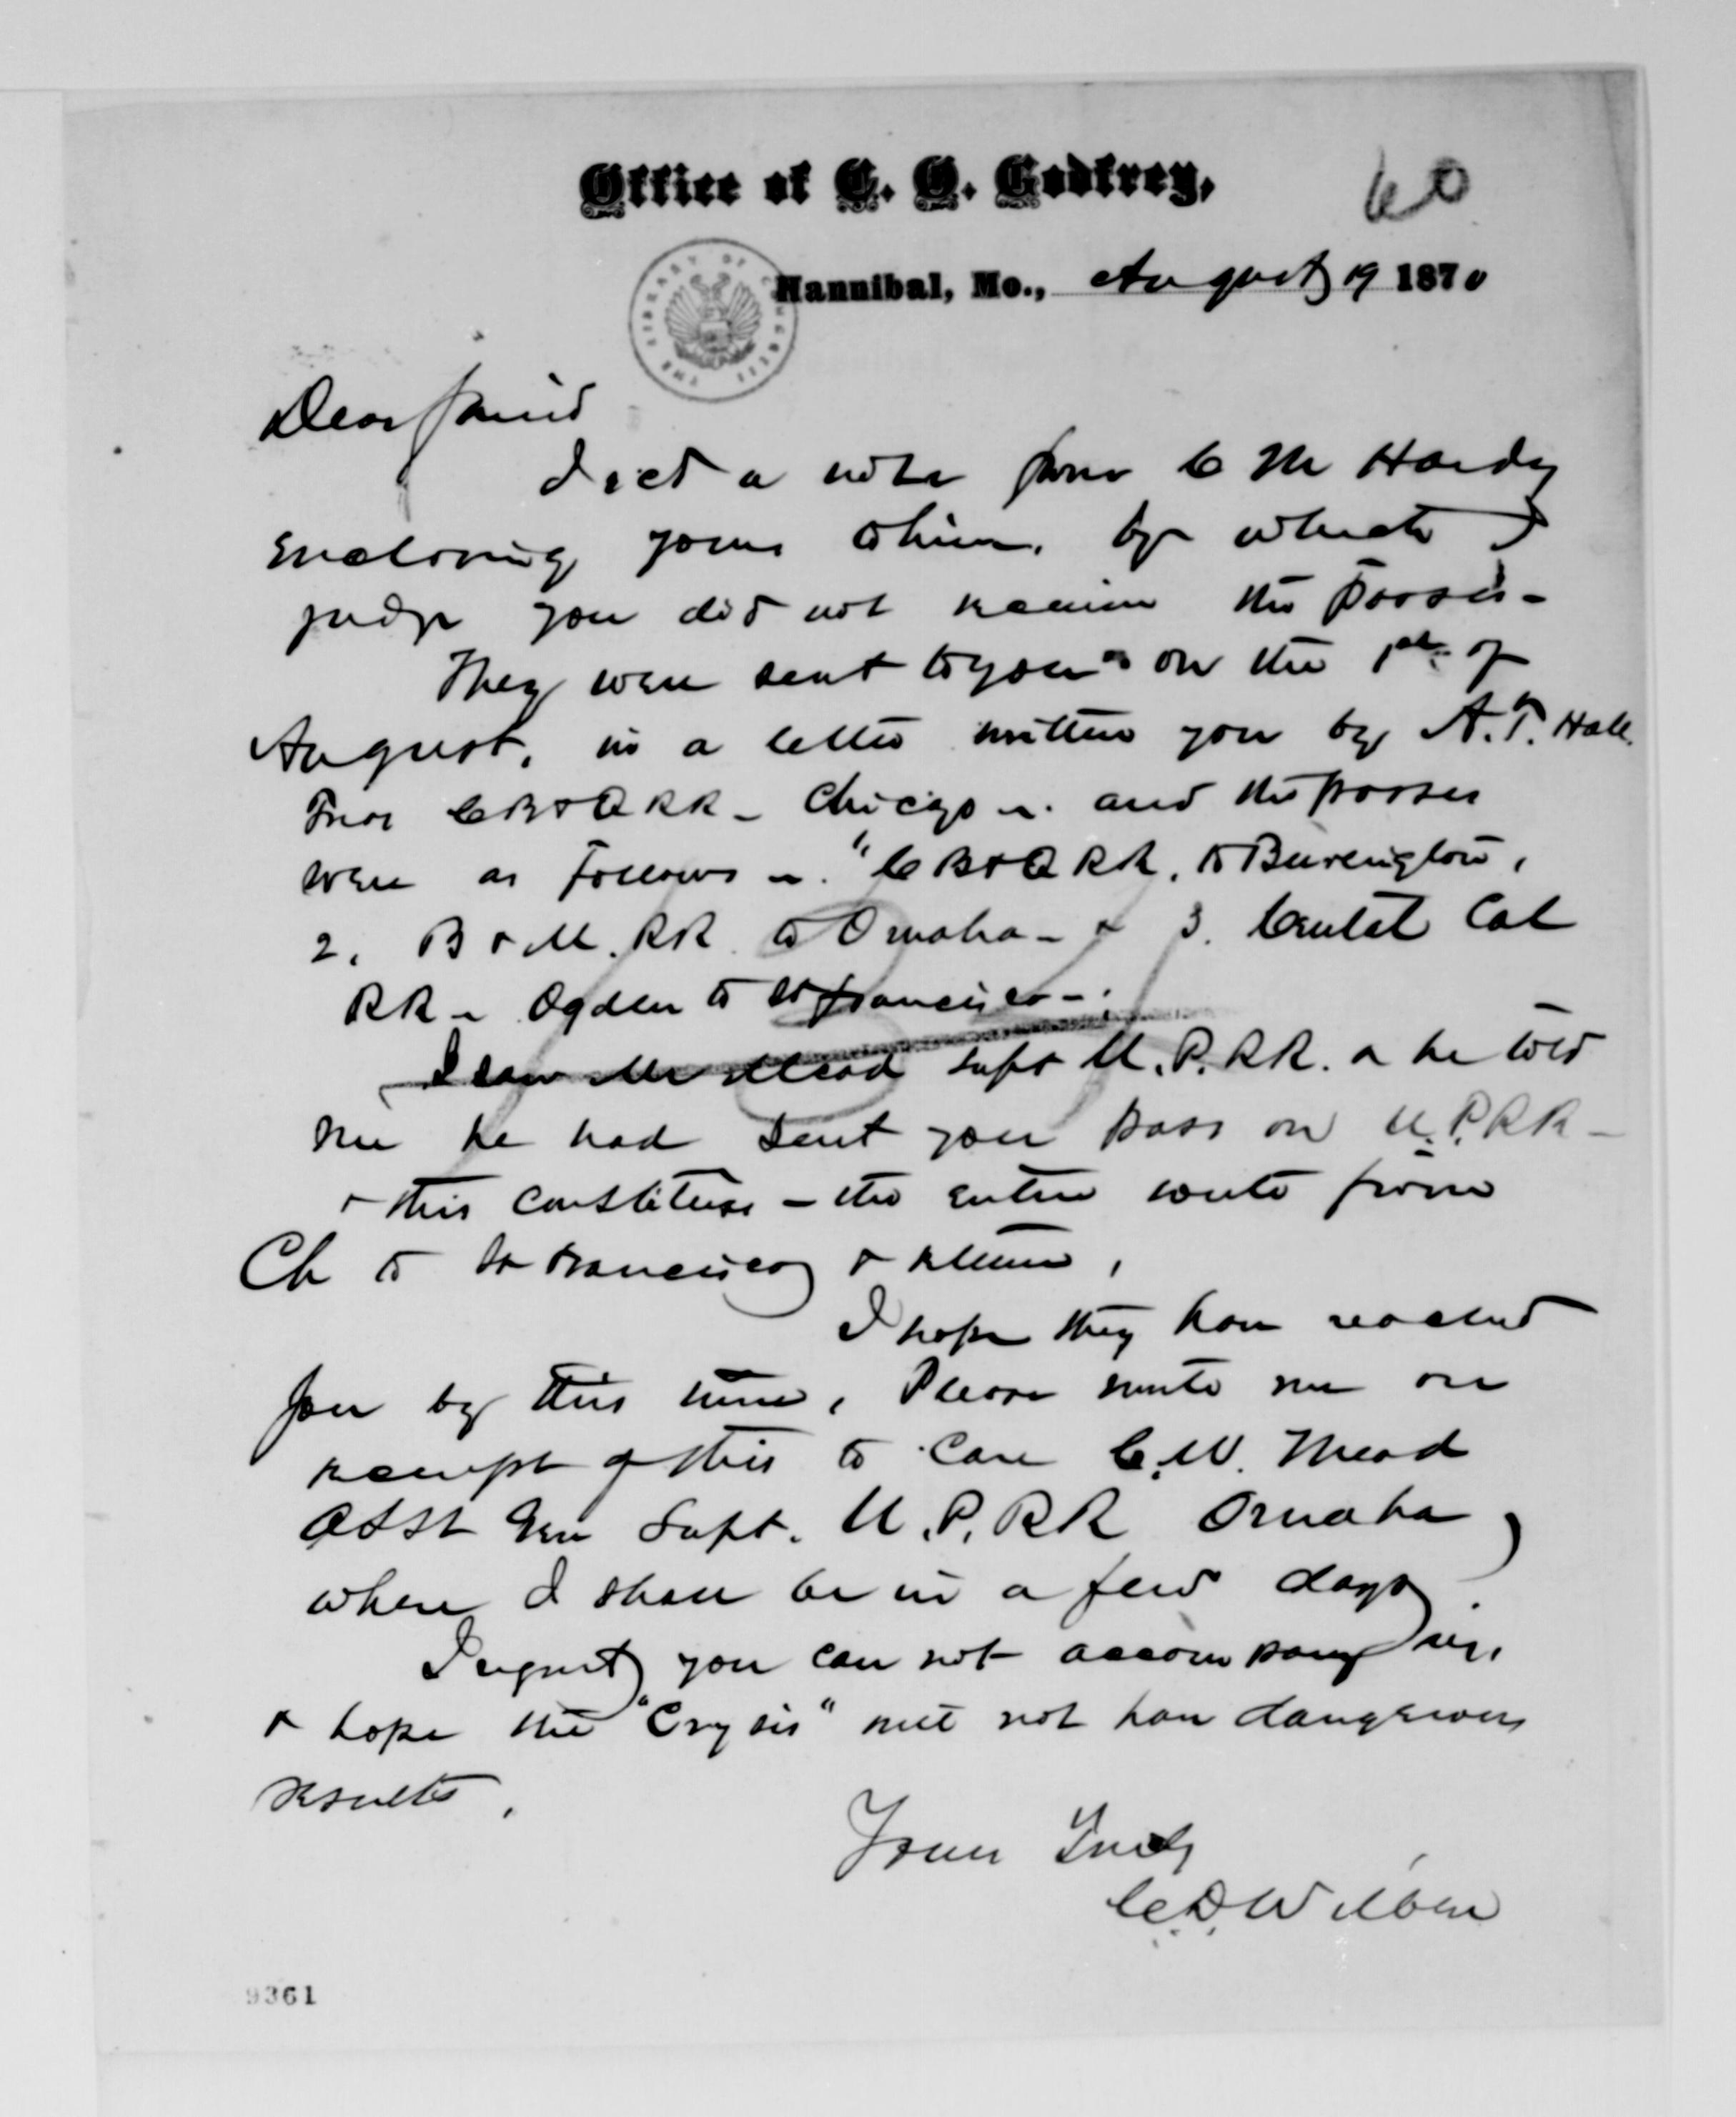 Office of C. O. Godfrey,
60
Hannibal, Mo., August 19 1870
THE LIBRARY OF CONGRESS
Dear friend
I recd a note from C M Hardy
enclosing yours to him. by which I
judge you did not receive the passes -
They were sent to you on the 1st of
August. in a letter written you by A. T. Hall
Treas CB&QRR - Chicago -. and the passes
were as follows -. "CB&QRR. to Burlington,
2. B & M. RR. to Omaha - & 3. Central Cal
RR - Ogden to St francisco - .
I saw Mr Mead Supt U. P. RR. & he told
me he had sent you pass on U. P. RR -
& this constitutes - the entire route from
Ch to St Francisco & return,
I hope they have reached
you by this time, Please write me on
receipt of this to care C. W. Mead
Asst Gen Supt. U. P. RR Omaha,
where I shall be in a few days.
I regret you can not accompany us,
& hope the "Crysis" will not have dangerous
results.
Yours Truly
C. D. Wilber
9361